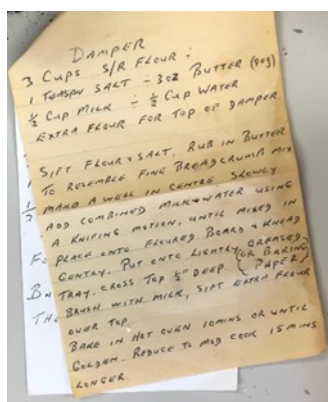 DAMPER
3 CUPS S/R FLOUR.
1 TEASPN SALT - 3OZ BUTTER (90g)
½ CUP MILK - ½ CUP WATER
EXTRA FLOUR FOR TOP OF DAMPER
SIFT FLOUR & SALT, RUB IN BUTTER
TO RESEMBLE FINE BREADCRUMB MIX
MAKE A WELL IN CENTRE SLOWLY
ADD COMBINED MILK & WATER USING
A KNIFING MOTION, UNTIL MIXED IN
PLACE ONTO FLOURED BOARD & KNEAD
GENTLY. PUT ONTO LIGHTLY GREASED
TRAY. CROSS TOP ½" DEEP (OR BAKING
PAPER)
BRUSH WITH MILK, SIFT EXTRA FLOUR
OVER TOP
BAKE IN HOT OVEN 10MINS OR UNTIL
GOLDEN. REDUCE TO MOD COOK 15 MINS
LONGER.